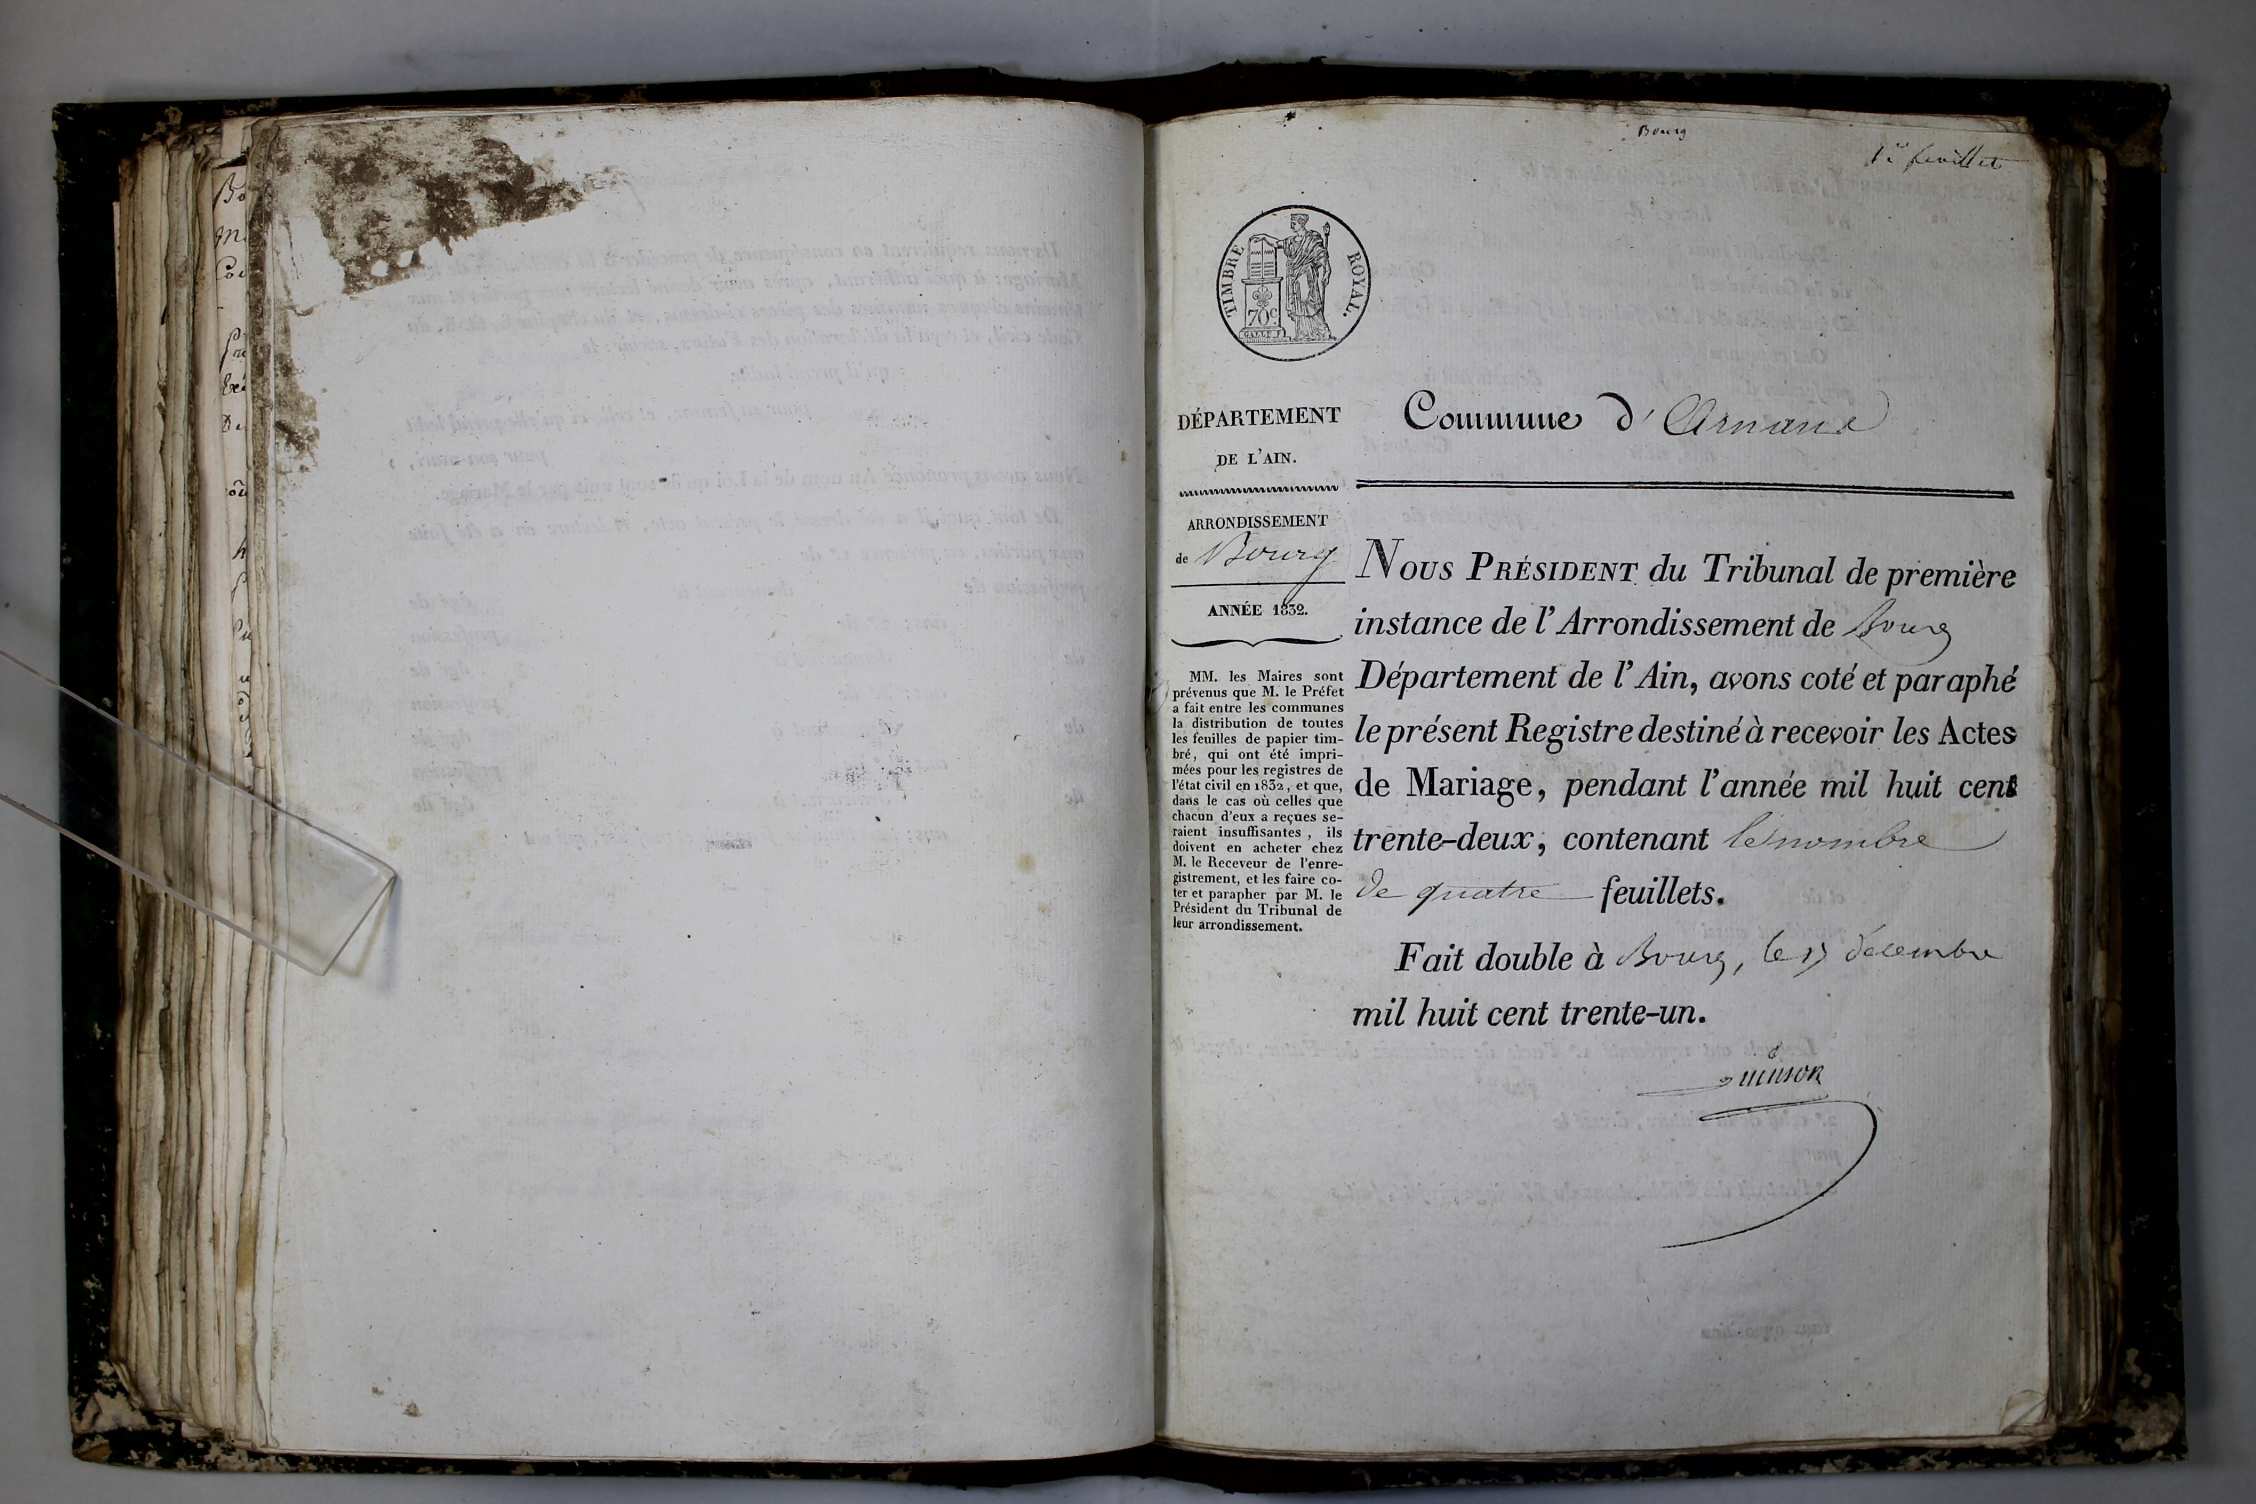 Bourg
1er feuillet
TIMBRE ROYAL.
70c
DÉPARTEMENT
DE L'AIN.
ARRONDISSEMENT
de Bourg
ANNÉE 1832.
MM. les Maires sont
prévenus que M. le Préfet
a fait entre les communes
la distribution de toutes
les feuilles de papier tim-
bré, qui ont été impri-
mées pour les registres de
l'état civil en 1832, et que,
dans le cas où celles que
chacun d'eux a reçues se-
raient insuffisantes, ils
doivent en acheter chez
M. le Receveur de l'enre-
gistrement, et les faire co-
ter et parapher par M. le
Président du Tribunal de
leur arrondissement.
Commune d'Arnans
NOUS PRÉSIDENT du Tribunal de première
instance de l'Arrondissement de Bourg
Département de l'Ain, avons coté et paraphé
le présent Registre destiné à recevoir les Actes
de Mariage, pendant l'année mil huit cent
trente-deux, contenant le nombre
de quatre feuillets.
Fait double à Bourg, le 17 décembre
mil huit cent trente-un.